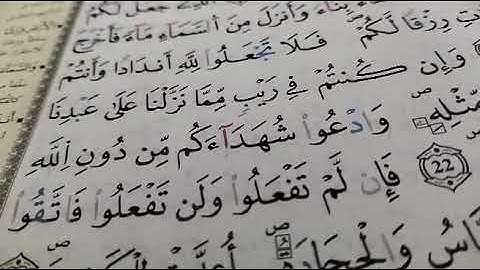 جَعَلَ لَكُمُ
بِنَآءً وَأَنزَلَ مِنَ ٱلسَّمَآءِ مَآءً فَأَخْرَجَ
رِزْقًا لَّكُمْ فَلَا تَجْعَلُوا۟ لِلَّهِ أَندَادًا وَأَنتُمْ
وَإِن كُنتُمْ فِى رَيْبٍ مِّمَّا نَزَّلْنَا عَلَىٰ عَبْدِنَا
مِّثْلِهِۦ وَٱدْعُوا۟ شُهَدَآءَكُم مِّن دُونِ ٱللَّهِ
22 فَإِن لَّمْ تَفْعَلُوا۟ وَلَن تَفْعَلُوا۟ فَٱتَّقُوا۟
وَٱلْحِجَارَةُ أُعِدَّتْ